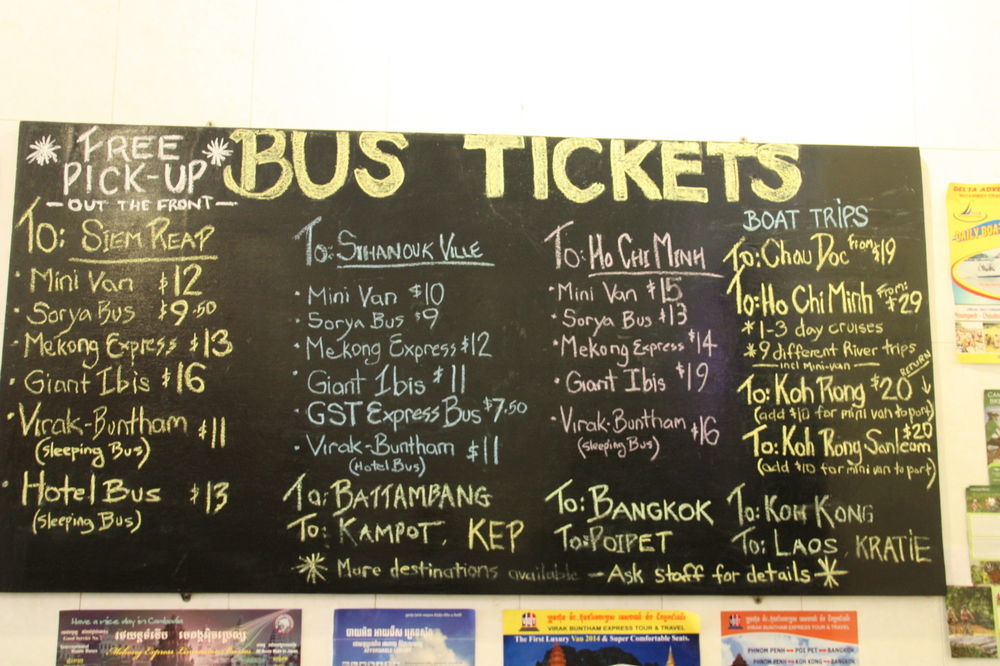 FREE
PICK-UP
- OUT THE FRONT -
BUS TICKETS
To: SIEM REAP
· Mini Van $12
· Sorya Bus $9.50
· Mekong Express $13
· Giant Ibis $16
· Virak-Buntham $11
(Sleeping Bus)
· Hotel Bus $13
(Sleeping Bus)
To: SIHANOUK VILLE
· Mini Van $10
· Sorya Bus $9
· Mekong Express $12
· Giant Ibis $11
· GST Express Bus $7.50
· Virak-Buntham $11
(Hotel Bus)
To: BATTAMBANG
To: KAMPOT, KEP
To: HO CHI MINH
· Mini Van $15
· Sorya Bus $13
· Mekong Express $14
· Giant Ibis $19
· Virak-Buntham $16
(Sleeping Bus)
To: BANGKOK
To: POIPET
BOAT TRIPS
To: Chau Doc From $19
To: Ho Chi Minh From: $29
* 1-3 day cruises
* 9 different River trips
- incl Mini-van -
RETURN
To: Koh Rong $20
(add $10 for mini van to port)
To: Koh Rong Sanleom $20
(add $10 for mini van to port)
To: KOH KONG
To: LAOS, KRATIE
* More destinations available - Ask staff for details *
DELTA ADVE
DAILY BOA
Have a nice day in Cambodia
Mekong Express
VIRAK BUNTHAM EXPRESS TOUR & TRAVEL
The First Luxury Van 2014 & Super Comfortable Seats.
VIRAK BUNTHAM EXPRESS TOUR & TRAVEL
PHNOM PENH → POI PET → BANGKOK
PHNOM PENH → KOH KONG → BANGKOK